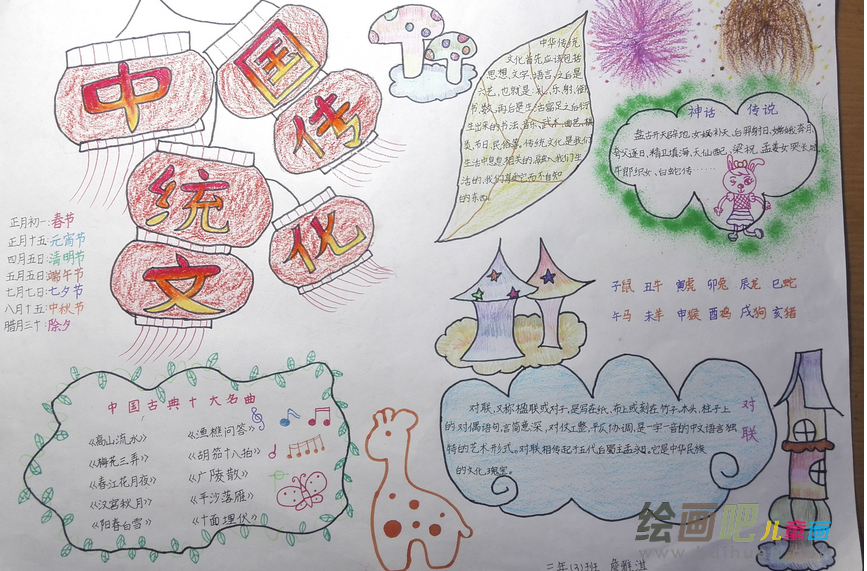 中国传统文化
正月初一:春节
正月十五:元宵节
四月五日:清明节
五月五日:端午节
七月七日:七夕节
八月十五:中秋节
腊月三十:除夕
中国古典十大名曲
《高山流水》
《梅花三弄》
《春江花月夜》
《汉宫秋月》
《阳春白雪》
《渔樵问答》
《胡笳十八拍》
《广陵散》
《平沙落雁》
《十面埋伏》
中华传统
文化首先应该包括
思想、文字、语言、之后是
六艺,也就是:礼、乐、射、御
书、数,再后是生活富足之后衍
生出来的书法、音乐、武术、曲艺、棋
类、节日、民俗等,传统文化是我们
生活中息息相关的,融入我们生
活的,我们享受它而不自知
的东西。
神话 传说
盘古开天辟地、女娲补天、后羿射日、嫦娥奔月、
夸父逐日、精卫填海、天仙配、梁祝、孟姜女哭长城、
牛郎织女、白蛇传……
子鼠 丑牛 寅虎 卯兔 辰龙 巳蛇
午马 未羊 申猴 酉鸡 戌狗 亥猪
对联
对联,又称楹联或对子,是写在纸、布上或刻在竹子、木头、柱子上
的对偶语句,言简意深,对仗工整,平仄协调,是一字一音的中文语言独
特的艺术形式。对联相传起于五代后蜀主孟昶,它是中华民族
的文化瑰宝。
三年(3)班
绘画吧儿童画